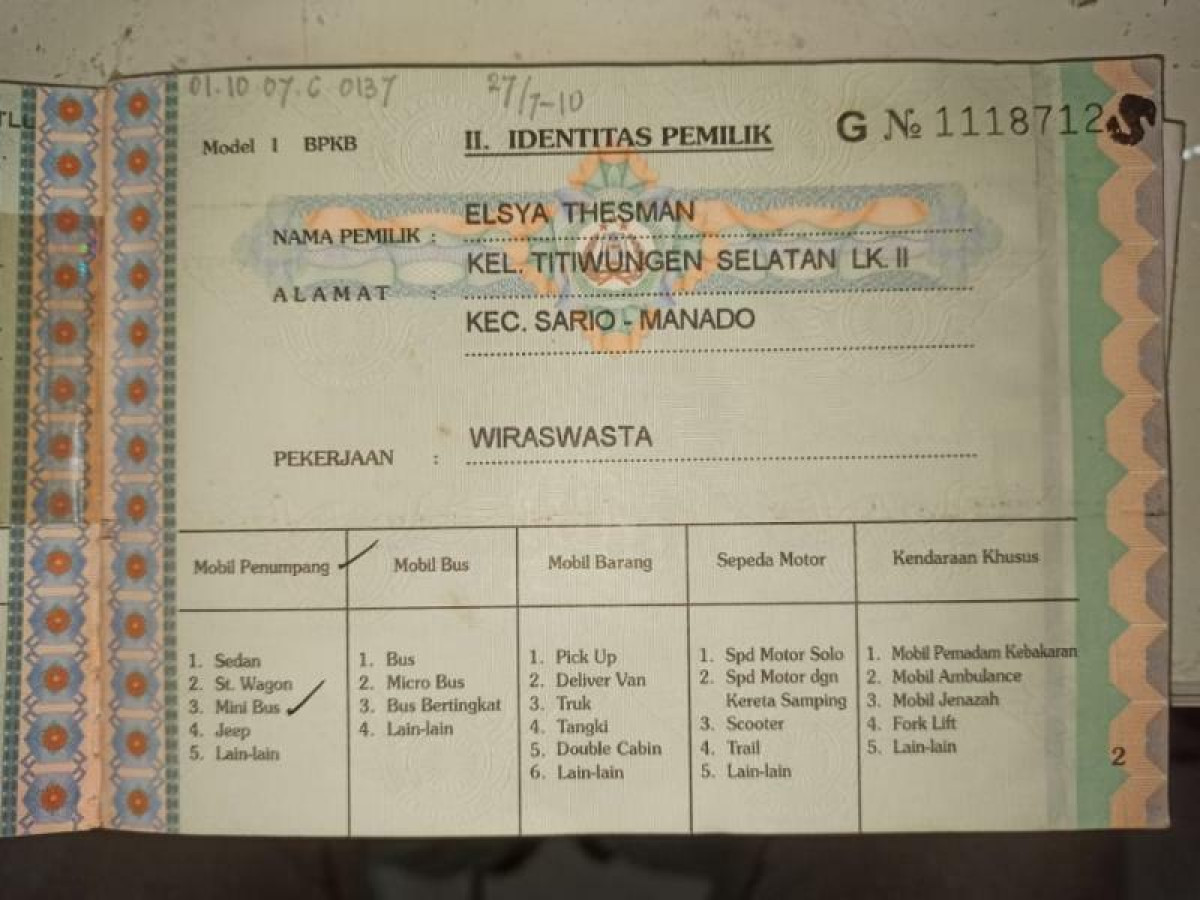 01.10 07.C 0137 27/7-10
Model 1 BPKB II. IDENTITAS PEMILIK G № 1118712 S
NAMA PEMILIK : ELSYA THESMAN
ALAMAT : KEL. TITIWUNGEN SELATAN LK. II
KEC. SARIO - MANADO
PEKERJAAN : WIRASWASTA
Mobil Penumpang Mobil Bus Mobil Barang Sepeda Motor Kendaraan Khusus
1. Sedan
2. St. Wagon
3. Mini Bus
4. Jeep
5. Lain-lain
1. Bus
2. Micro Bus
3. Bus Bertingkat
4. Lain-lain
1. Pick Up
2. Deliver Van
3. Truk
4. Tangki
5. Double Cabin
6. Lain-lain
1. Spd Motor Solo
2. Spd Motor dgn
Kereta Samping
3. Scooter
4. Trail
5. Lain-lain
1. Mobil Pemadam Kebakaran
2. Mobil Ambulance
3. Mobil Jenazah
4. Fork Lift
5. Lain-lain
2